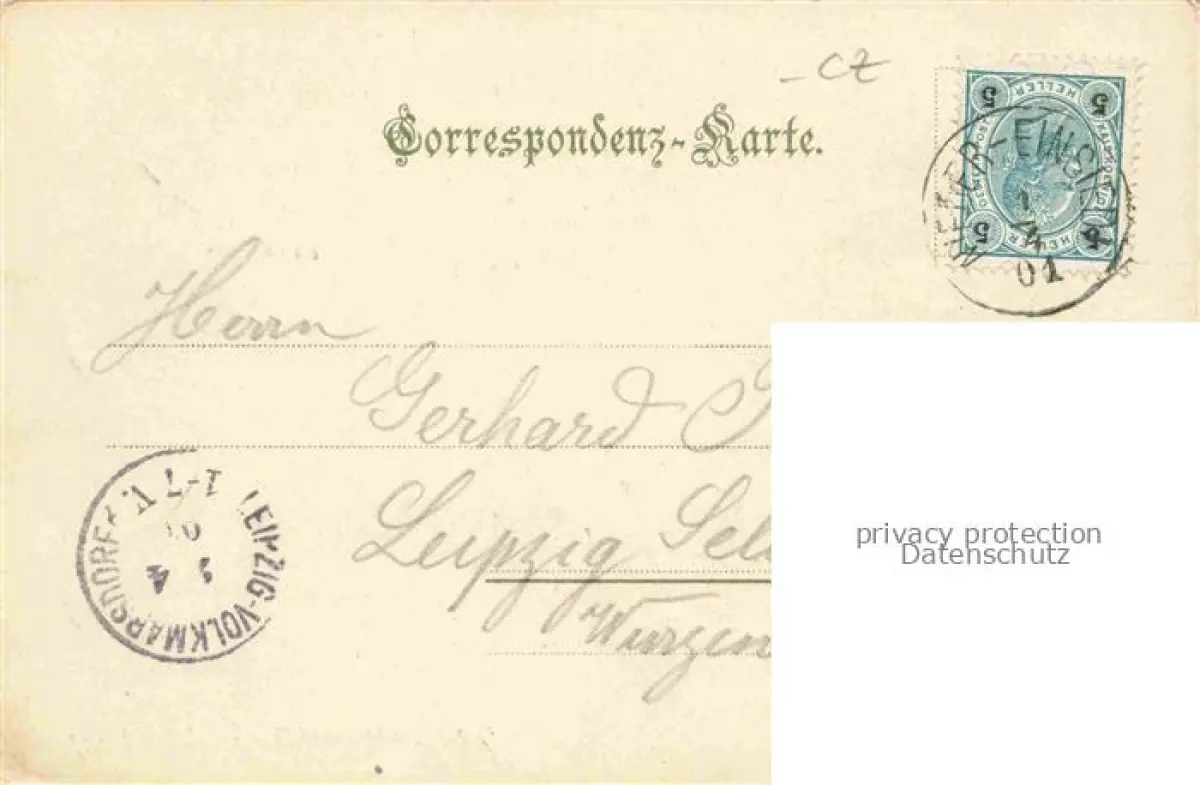 - CZ
Correspondenz-Karte.
5 HELLER 5
5 HELLER 5
1
4
01
Herrn
Gerhard
Leipzig
Wurzen
LEIPZIG-VOLKMARSDORF
1-7 V
1 4
01
privacy protection
Datenschutz